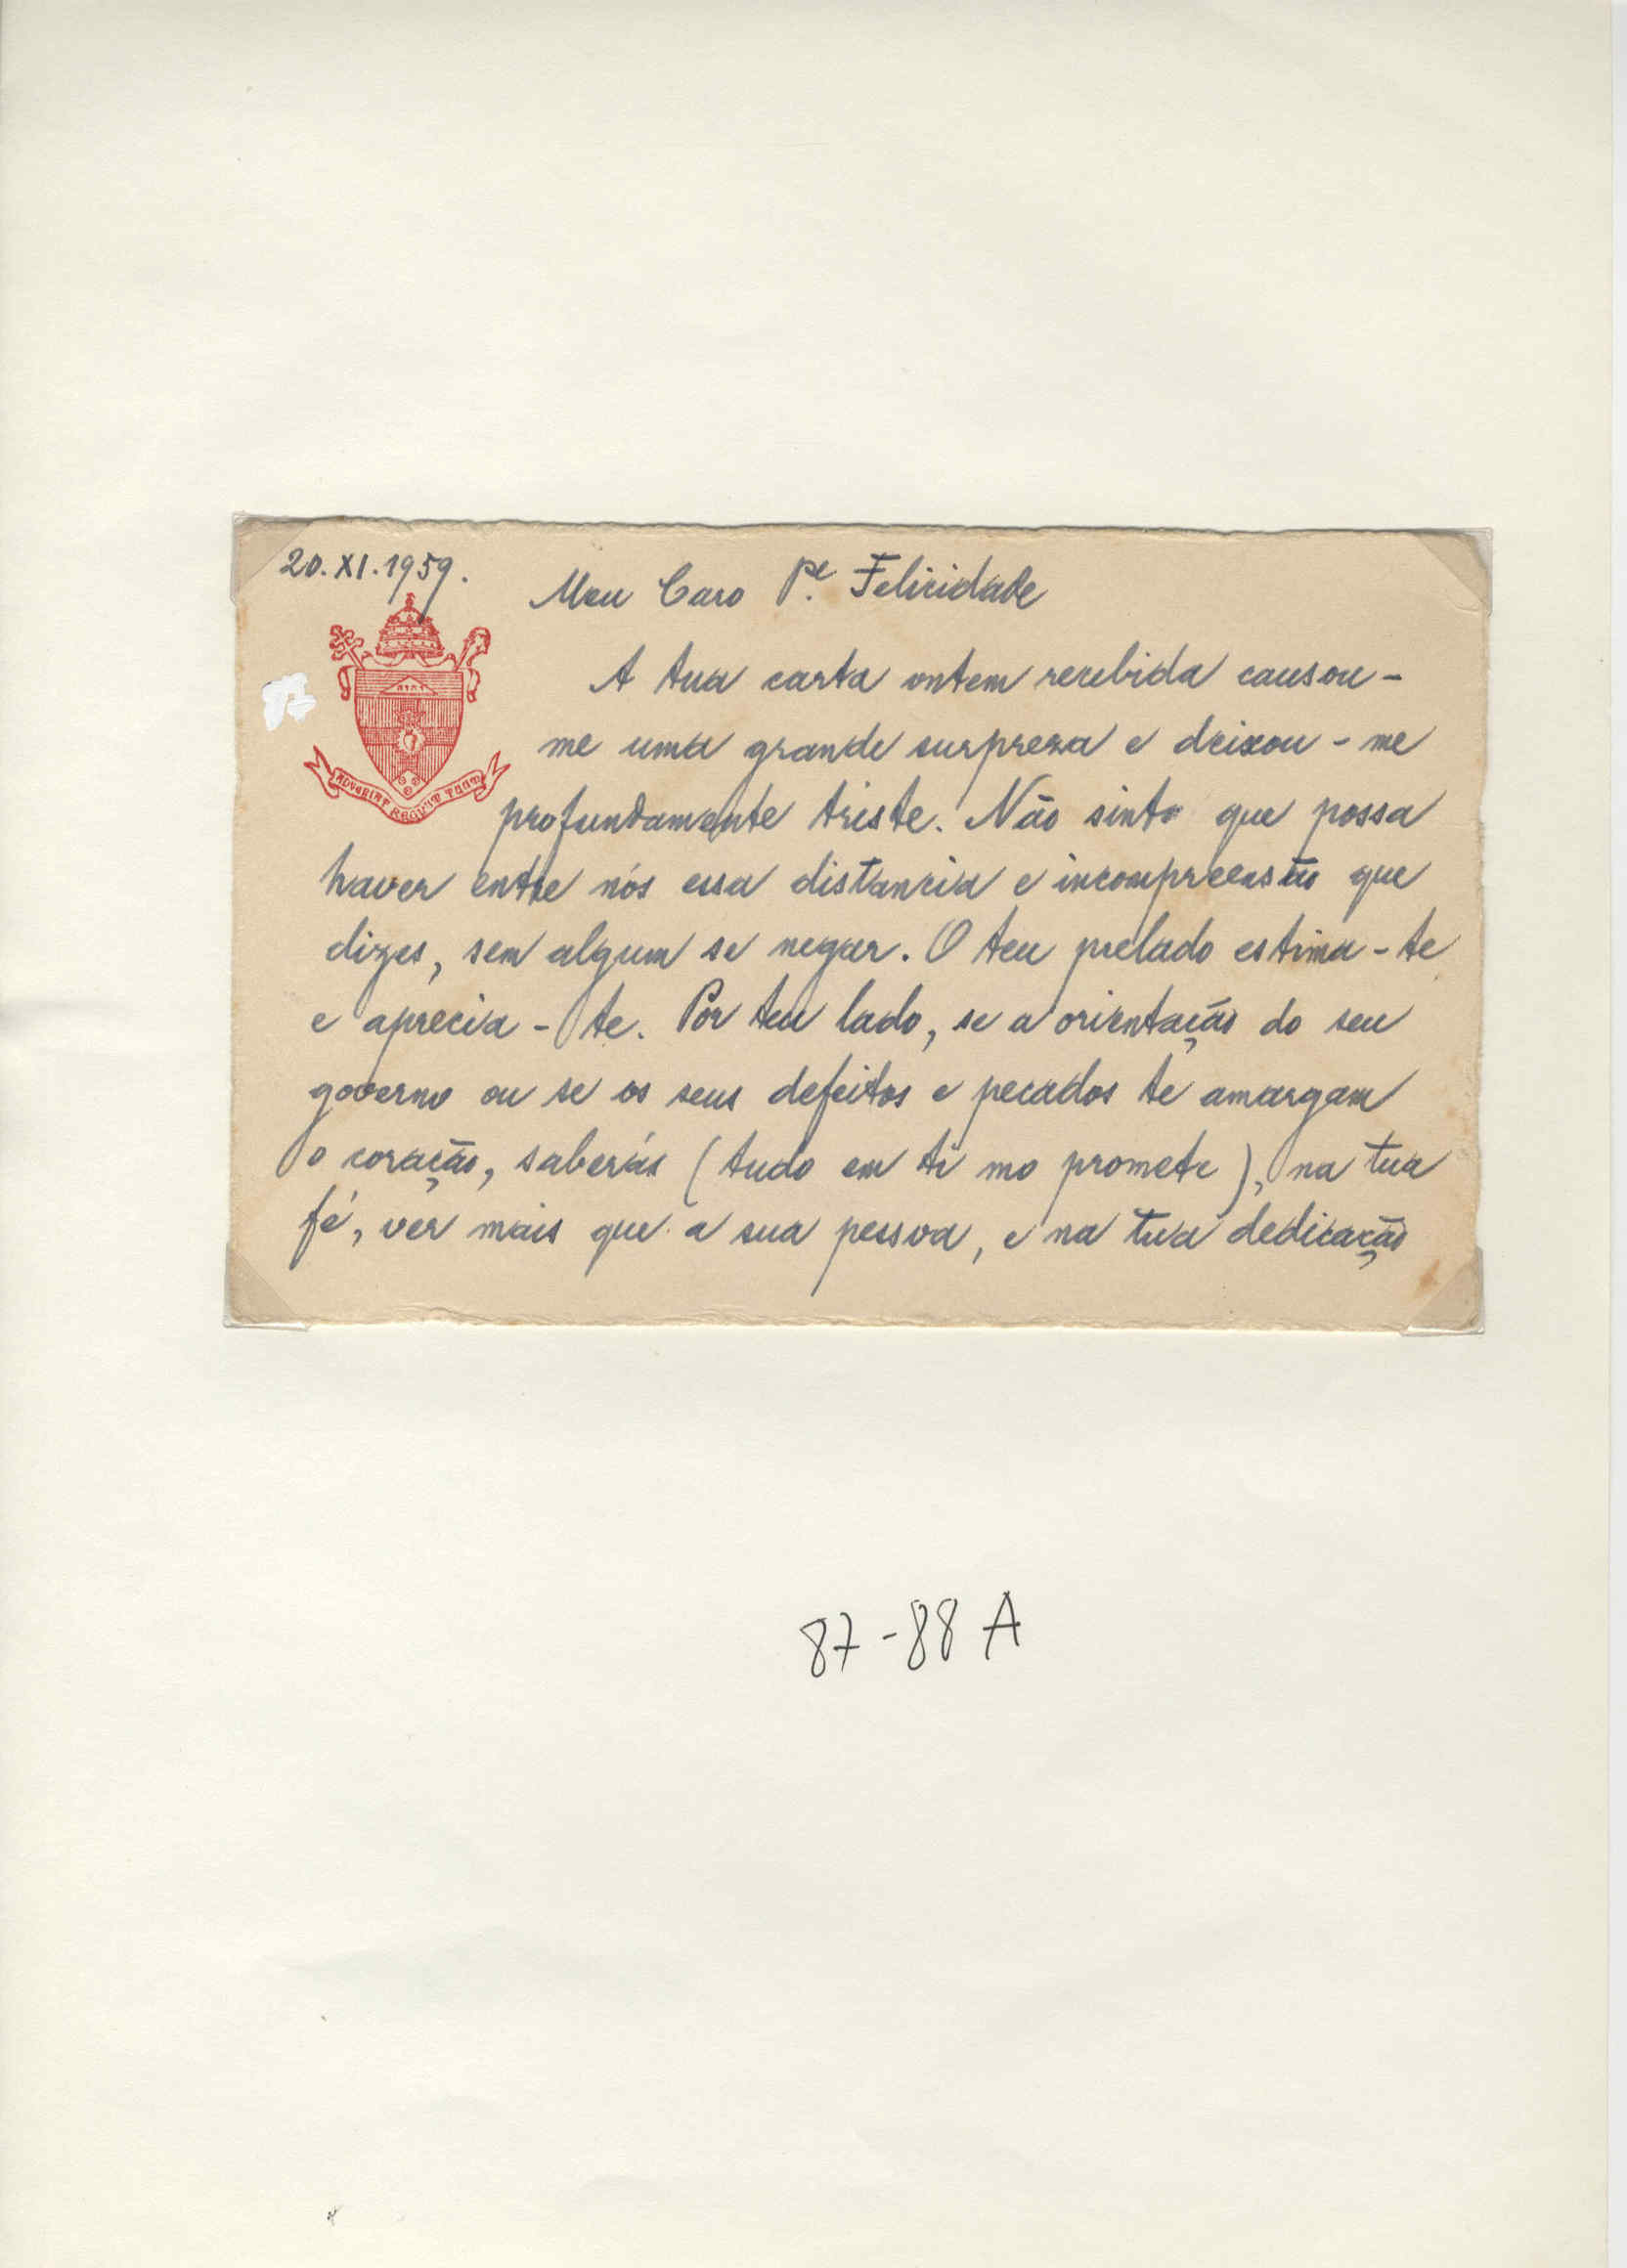 20.XI.1959.
Meu Caro Pe. Felicidade
A tua carta ontem recebida causou-
me uma grande surpreza e deixou-me
ADVENIAT REGNUM TUUM
profundamente triste. Não sinto que possa
haver entre nós essa distancia e incompreensão que
dizes, sem algum se negar. O teu prelado estima-te
e aprecia-te. Por teu lado, se a orientação do seu
governo ou se os seus defeitos e pecados te amargam
o coração, saberás (tudo em ti mo promete), na tua
fé, ver mais que a sua pessoa, e na tua dedicação
87-88 A